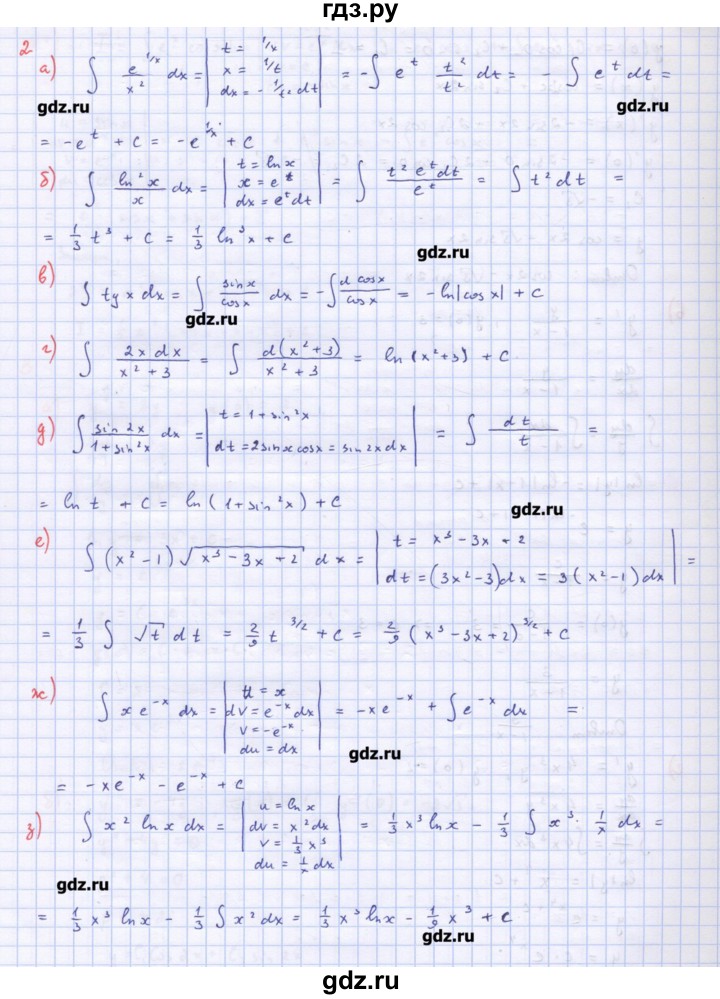 гдз.ру
2
а) ∫ e^{1/x}/x² dx = | t = 1/x; x = 1/t; dx = -1/t² dt | = -∫ e^t t²/t² dt = -∫ e^t dt =
gdz.ru gdz.ru
= -e^t + c = -e^{1/x} + c
б) ∫ ln²x/x dx = | t = ln x; x = e^t; dx = e^t dt | = ∫ t² e^t dt/e^t = ∫ t² dt =
= 1/3 t³ + c = 1/3 ln³x + c
gdz.ru
в) ∫ tg x dx = ∫ sin x/cos x dx = -∫ d cos x/cos x = -ln|cos x| + c
gdz.ru
г) ∫ 2x dx/x² + 3 = ∫ d(x² + 3)/x² + 3 = ln(x² + 3) + c
д) ∫ sin 2x/1 + sin²x dx = | t = 1 + sin²x; dt = 2 sin x cos x = sin 2x dx | = ∫ dt/t =
gdz.ru
= ln t + c = ln(1 + sin²x) + c
gdz.ru
е) ∫ (x² - 1) √(x³ - 3x + 2) dx = | t = x³ - 3x + 2; dt = (3x² - 3)dx = 3(x² - 1)dx | =
gdz.ru
= 1/3 ∫ √t dt = 2/9 t^{3/2} + c = 2/9 (x³ - 3x + 2)^{3/2} + c
ж) ∫ x e^{-x} dx = | u = x; dv = e^{-x} dx; v = -e^{-x}; du = dx | = -x e^{-x} + ∫ e^{-x} dx =
gdz.ru
= -x e^{-x} - e^{-x} + c
з) ∫ x² ln x dx = | u = ln x; dv = x² dx; v = 1/3 x³; du = 1/x dx | = 1/3 x³ ln x - 1/3 ∫ x³ · 1/x dx =
gdz.ru
= 1/3 x³ ln x - 1/3 ∫ x² dx = 1/3 x³ ln x - 1/9 x³ + c
gdz.ru
gdz.ru